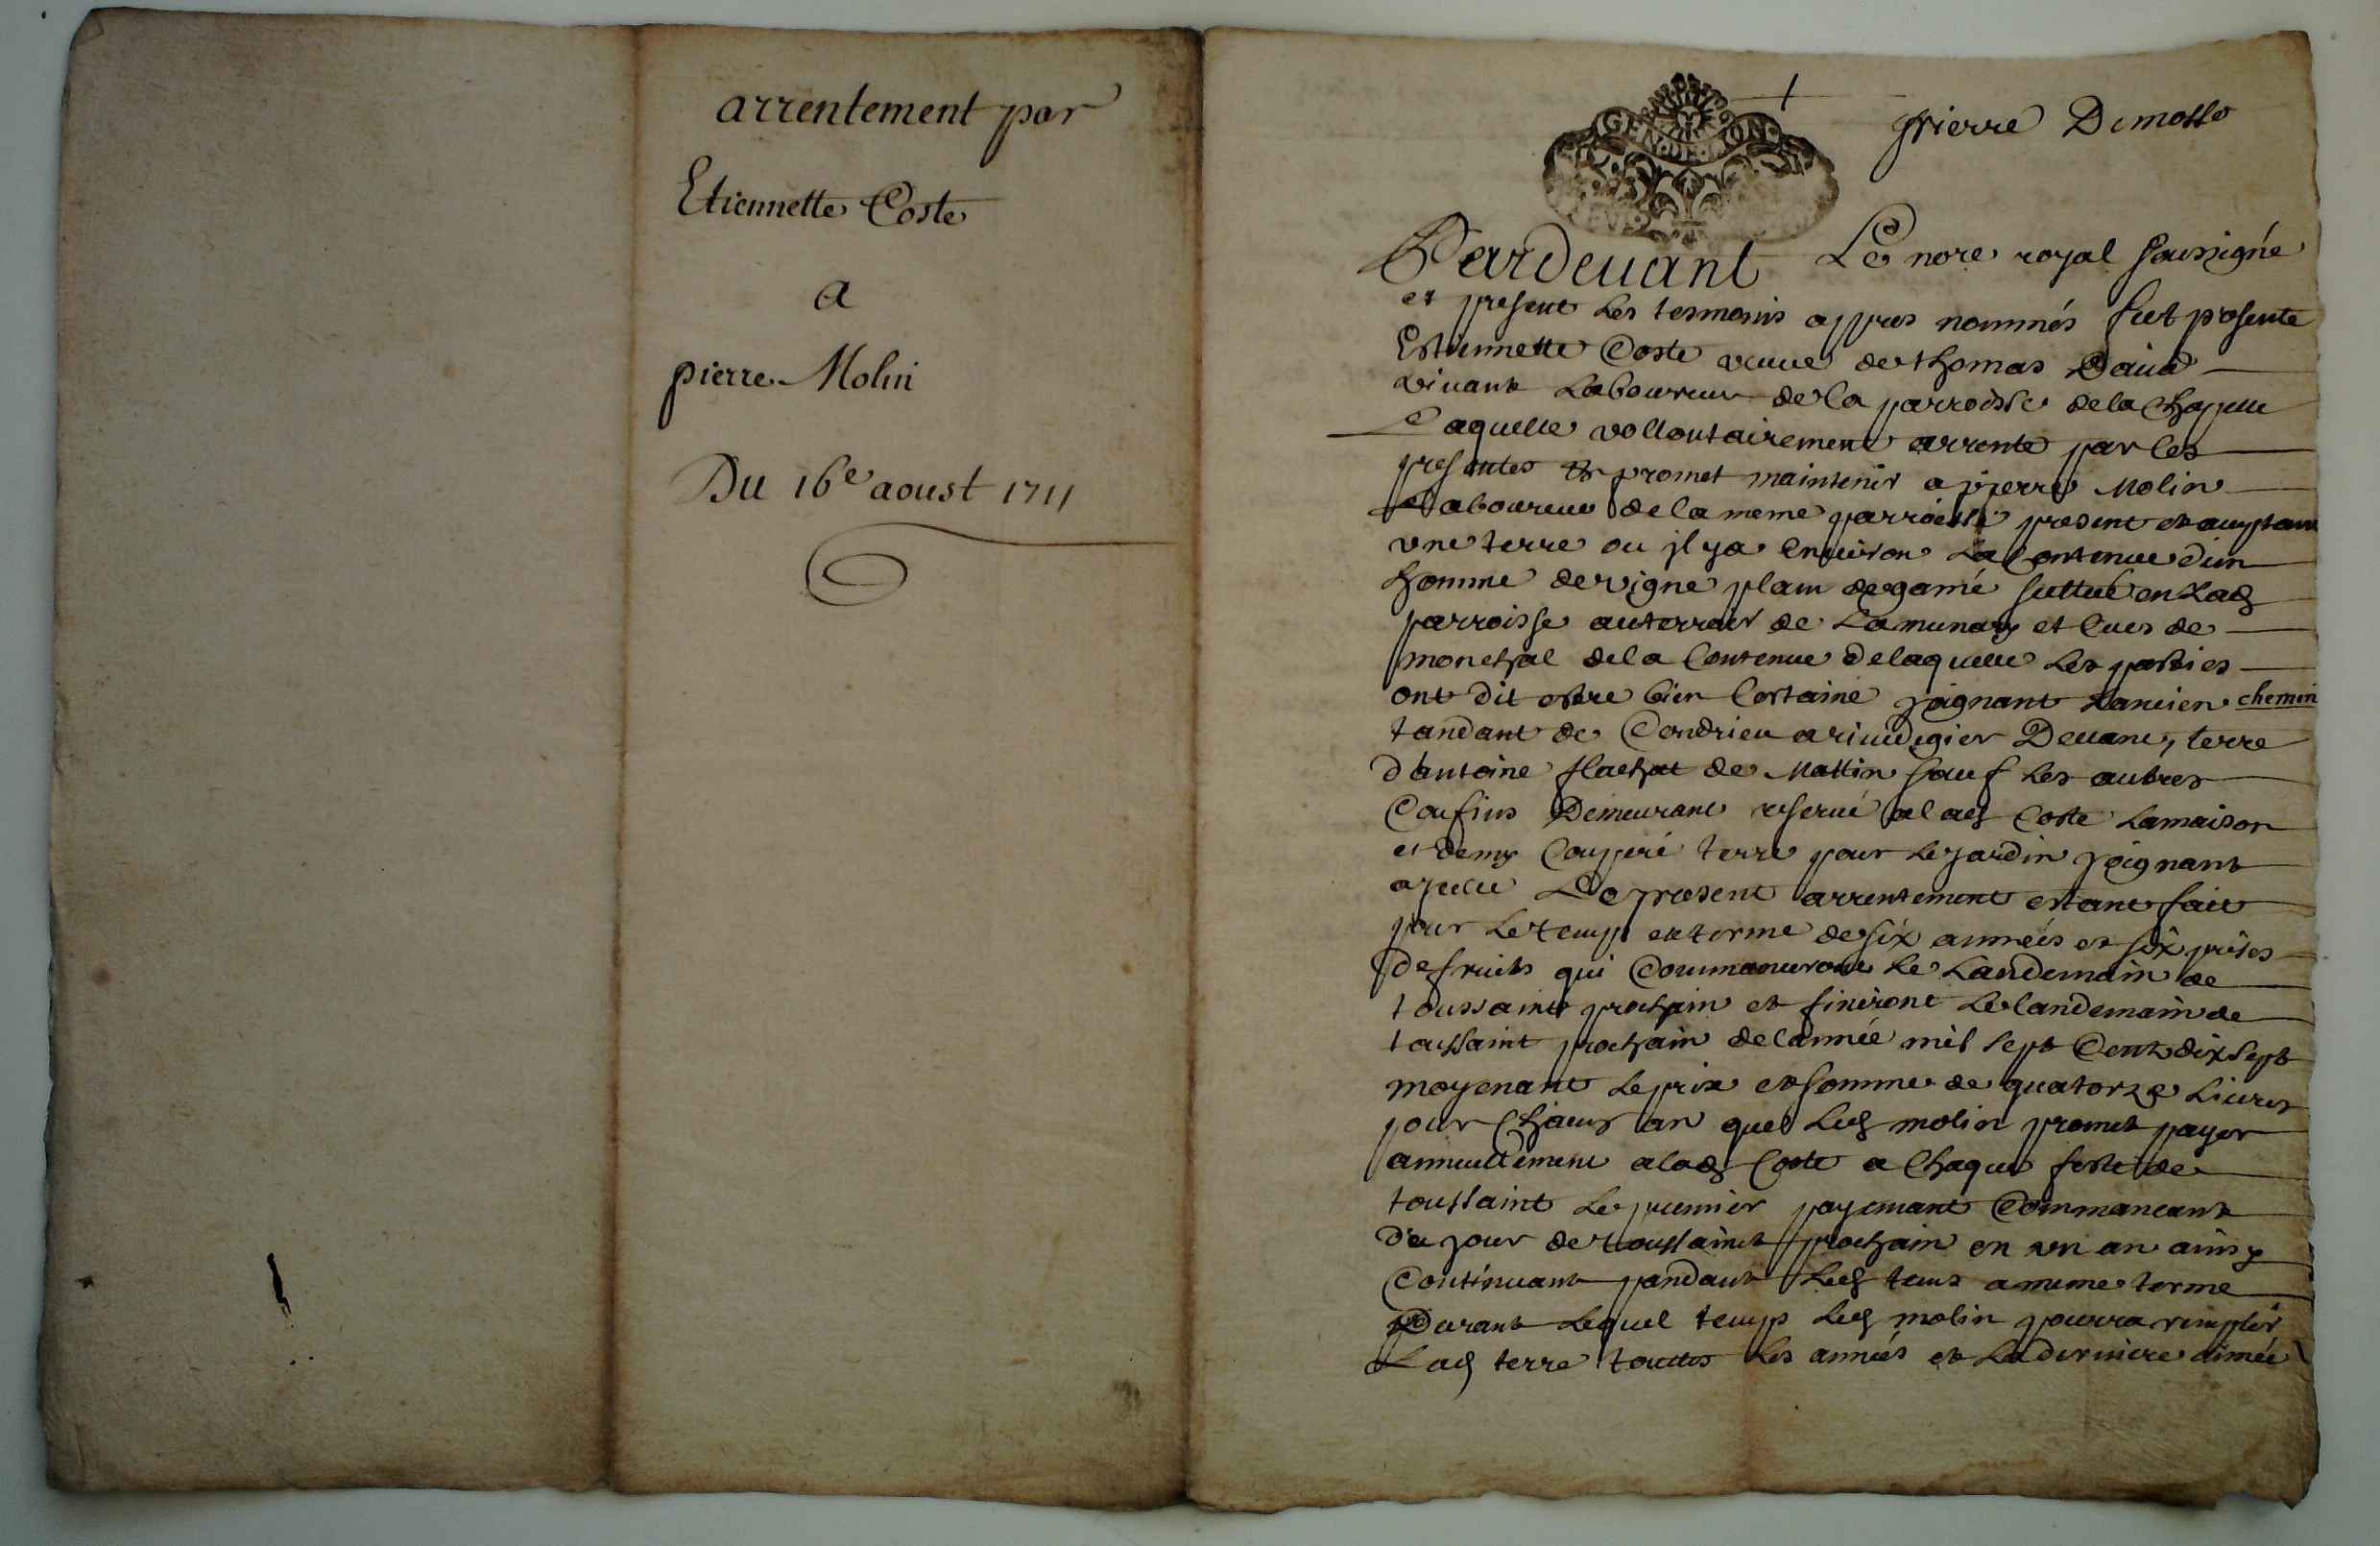 arrentement par
Etiennette Coste
a
pierre Molin
Du 16e aoust 1711
GEN DE LYON
pierre Dimosse
Pardeuant Le nore royal soussigné
et present les tesmoins appres nommés fut presente
Estiennette Coste veuue de thomas Dauid
viuant Laboureur de la parroisse de la Chapelle
Laquelle vollontairement arrente par les
presentes & promet maintenir a pierre Molin
Laboureur de la meme parroisse present et acceptant
une terre ou jl ya enuiron La Contenue d'un
homme de vigne plain de game scittué en Lad
parroisse au terroir de Lamunary et Cues de
monchal de la Contenue de laquelle les parties
ont dit estre bien Certaine joignant Lancien chemin
tandant de Condrieu a Deuant, terre
d'antoine flachat de Mattin sauf les autres
Confins Demeurant reserué a lad Coste La maison
et demy Couppé terre pour le jardin joignant
a jcelle Le present arrentement estant fait
pour le temp et terme de six années et six prises
de fruits qui Commanceront le Landemain de
toussaint prochain et finiront le landemain de
toussaint prochain de lannée mil sept Cent dix sept
moyenant le prix et somme de quatorze Liures
pour Chacun an que led molin promet payer
annuellement a lad Coste a Chaque feste de
toussaint le premier payemant Commancant
du jour de toussaint prochain en un an ainsy
Continuant pandant led tems a meme terme
Durant lequel temps led molin pourra remplir
Lad terre touttes les années et la derniere année